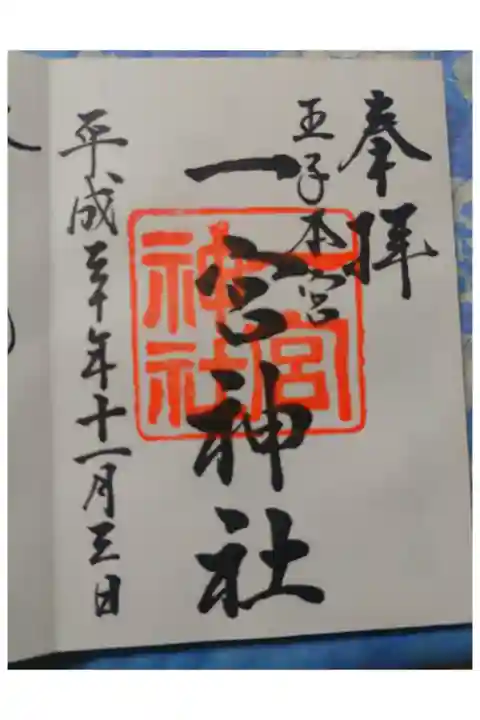 奉拝
王子本宮
一宮神社
一宮神社
平成三十年十一月三日